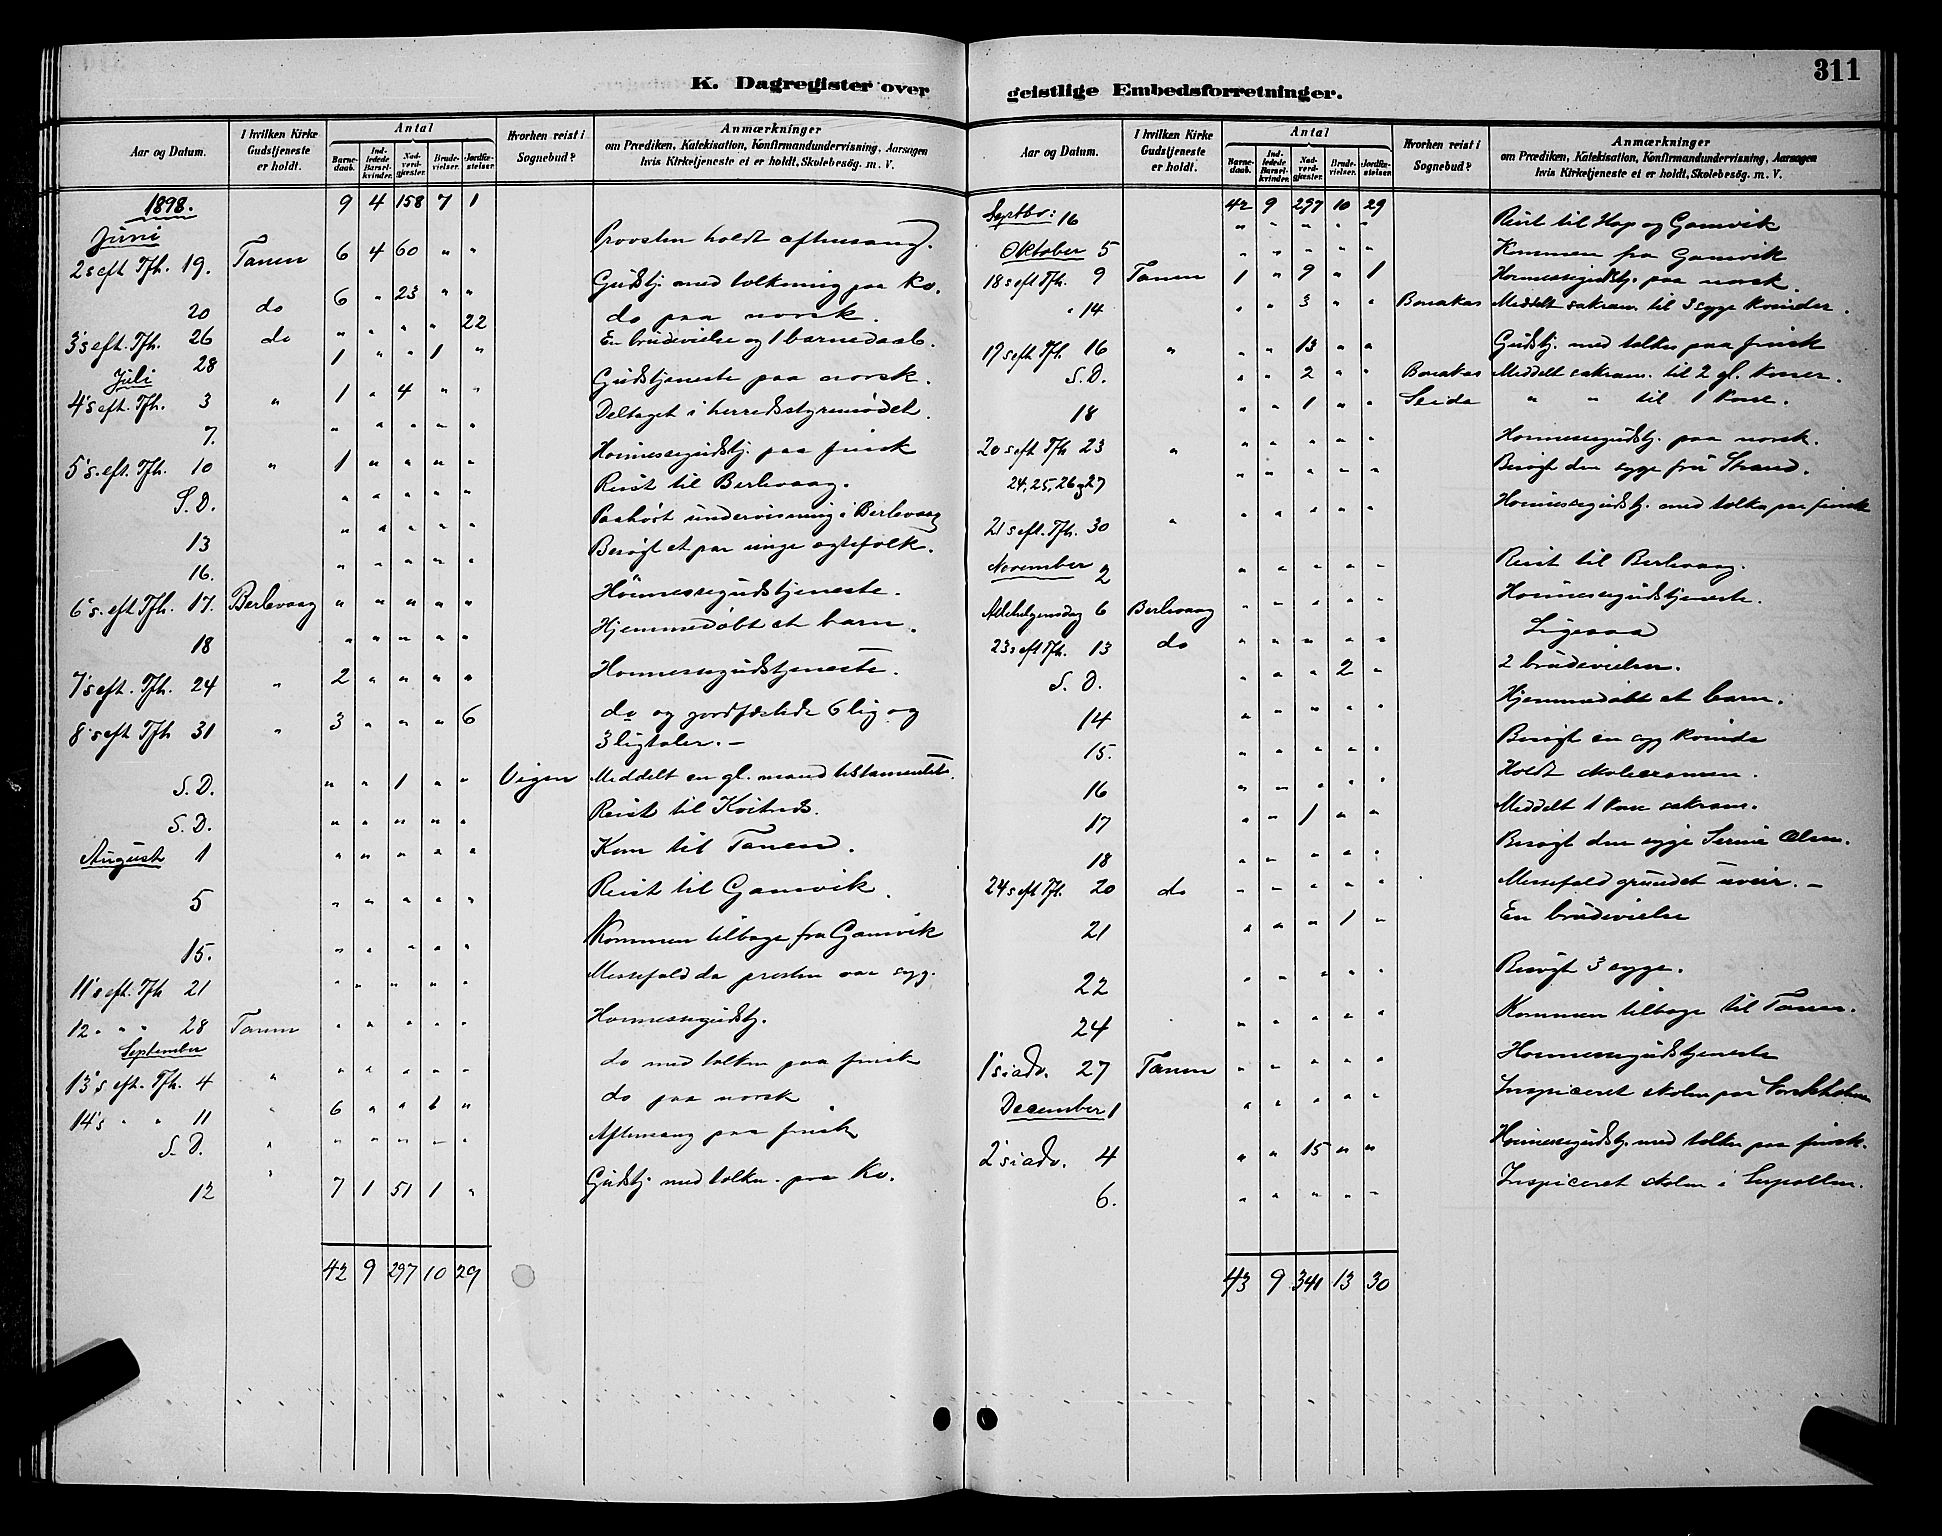 K. Dagregister over
Aar og Datum.
I hvilken Kirke Gudstjeneste er holdt.
Antal
Barne-daab.
Ind-ledede Barsel-kvinder.
Nad-verd-gjæster.
Brude-vielser.
Jordfæ-stelser.
Hvorhen reist i Sognebud?
Anmærkninger
om Prædiken, Katekisation, Konfirmandundervisning. Aarsagen
hvis Kirketjeneste ei er holdt, Skolebesøg. m. V.
1898. 9 4 158 7 1
Juni
2 s eft Tfh. 19. Tanen 6 4 60 " " Provsten holdt aftensang.
20 do 6 " 23 " " Gudstj. med tolkning paa kv.
3's eft. Tfh. 26 do " " " " 22 do paa norsk.
28 1 " " 1 " En brudevielse og 1 barnedaab.
Juli
4's eft. Tfh. 3 " 1 " 4 " " Gudstjeneste paa norsk.
7. " " " " " Deltaget i herredsstyremødet.
5's. eft. Tfh. 10 " 1 " " " " Høimessegudstj. paa finsk
S. D. " " " " " Reist til Berlevaag.
13 " " " " " Paahørt undervisning i Berlevaag
16. " " " " " Besøgt et par unge egtefolk.
6's. eft Tfh. 17. Berlevaag " " " " " Höimessegudstjeneste.
18 " " " " " Hjemmedøbt et barn.
7's eft. Tfh. 24 " 2 " " " " Höimessegudstjeneste.
8's eft Tfh 31 " 3 " " " 6 do og jordfæstede 6 lig og
3 ligtaler. –
S. D. " " 1 " " Vigen Meddelt en gl. mand testamentete.
S. D. " " " " " Reist til Koitnes.
August 1 " " " " " Kom til Tanen.
5 " " " " " Reist til Gamvik.
15. " " " " " Kommen tilbage fra Gamvik
11's eft. Tfh 21 " " " " " Messefald da presten var syg.
12 " " " 28 Tanen " " " " " Høimessegudstj.
September
13's eft. Tfh. 4 " " " " " " do med tolken paa finsk
14's " " 11 " 6 " " 1 " do paa norsk
S. D. " " " " " " Aftensang paa finsk
12 " 7 1 51 1 " Gudstj. med tolken. paa kv.
42 9 297 10 29
311
geistlige Embedsforretninger.
Aar og Datum.
I hvilken Kirke Gudstjeneste er holdt.
Antal
Barne-daab.
Ind-ledede Barsel-kvinder.
Nad-verd-gjæster.
Brude-vielser.
Jordfæ-stelser.
Hvorhen reist i Sognebud?
Anmærkninger
om Prædiken, Katekisation, Konfirmandundervisning, Aarsagen
hvis Kirketjeneste ei er holdt, Skolebesög. m. V.
42 9 297 10 29
Septbr: 16 " " " " " Reist til Hop og Gamvik
Oktober 5 " " " " " Kommen fra Gamvik
18 s eft Tfh. 9 Tanen 1 " 9 " 1 Høimessegudstj. paa norsk.
" 14 " " 3 " " Bonakas Meddelt sakram. til 3 syge kvinder.
19 s eft Tfh. 16 " " " 13 " " Gudstj. med tolken paa finsk
S. D. " " 2 " " Bonakas Meddelt sakram. til 2 gl. koner.
18 " " 1 " " Seida " " til 1 kone.
20 s eft Tfh 23 " " " " " " Høimessegudstj. paa norsk.
24, 25, 26 og 27 " " " " " Besøgt den syge fru Strand.
21 s eft. Tfh. 30 " " " " " " Høimessegudstj. med tolken paa finsk
November 2 " " " " " Reist til Berlevaag.
Allehelgensdag 6 Berlevaag " " " " " Høimessegudstjeneste.
23 s eft Tfh. 13 do " " " " " Ligesaa
S. D. " " " 2 " 2 brudevielser.
14 " " " " " Hjemmedøbt et barn.
15. " " " " " Besøgt en syg kvinde
16 " " " " " Holdt skoleexamen.
17 " " 1 " " Meddelt 1 kone sakram.
18 " " " " " Besøgt den syge Serine Olsen.
24 s eft Tfh. 20 do " " " " " Messefald grundet uveir. –
21 " " " 1 " En brudevielse
22 " " " " " Besøgt 3 syge.
24 " " " " " Kommen tilbage til Tanen.
1's i adv. 27 Tanen " " " " " Høimessegudstjeneste
December 1 " " " " " Inspiceret skolen paa
2's i adv. 4 " " 15 " " Høimessegudstj. med tolken paa finsk.
6. " " " " " Inspiceret skolen i
43 9 341 13 30